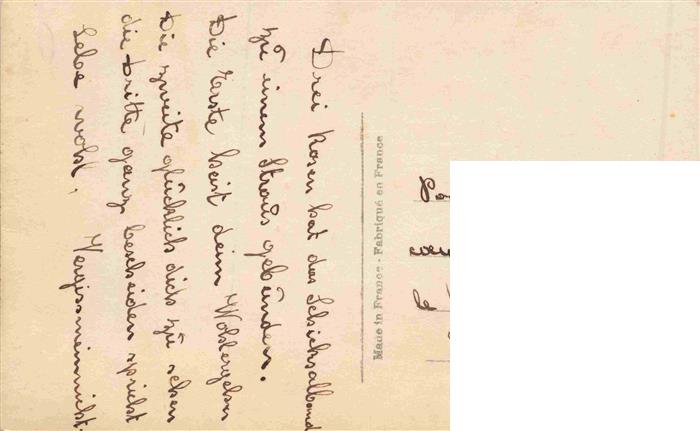 Drei Rosen hat das Schicksalband
zu einem Strauß gebunden.
Die Erste heist deim Wohlergehen
Die zweite glücklich dich zu sehen
die dritte ganz bescheiden spricht
Lebe wohl, Vergissmeinnicht.
Made in France - Fabriqué en France
le